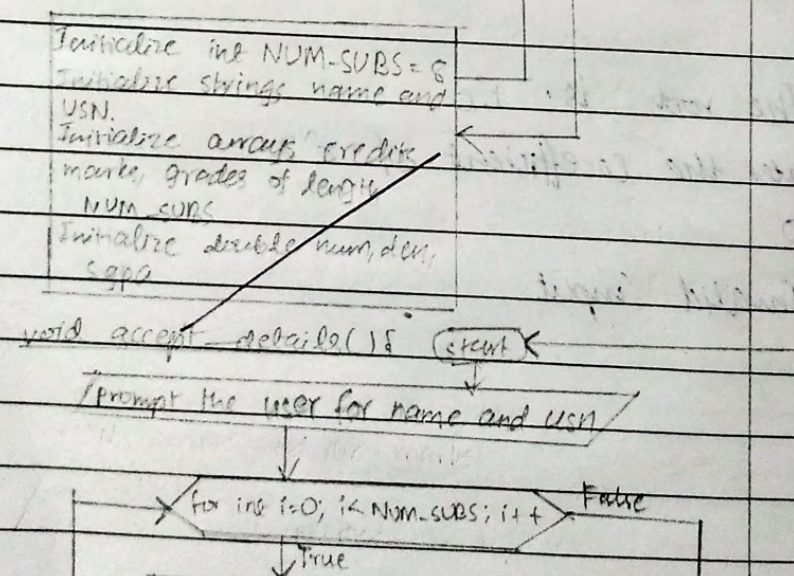 Initialize int NUM_SUBS = 8
Initialize strings name and
USN.
Initialize arrays credits
marks, grades of length
NUM_SUBS
Initialize double num, den,
sgpa
void accept_details(){ start
prompt the user for name and usn
for int i=0; i< NUM_SUBS; i++ False
True